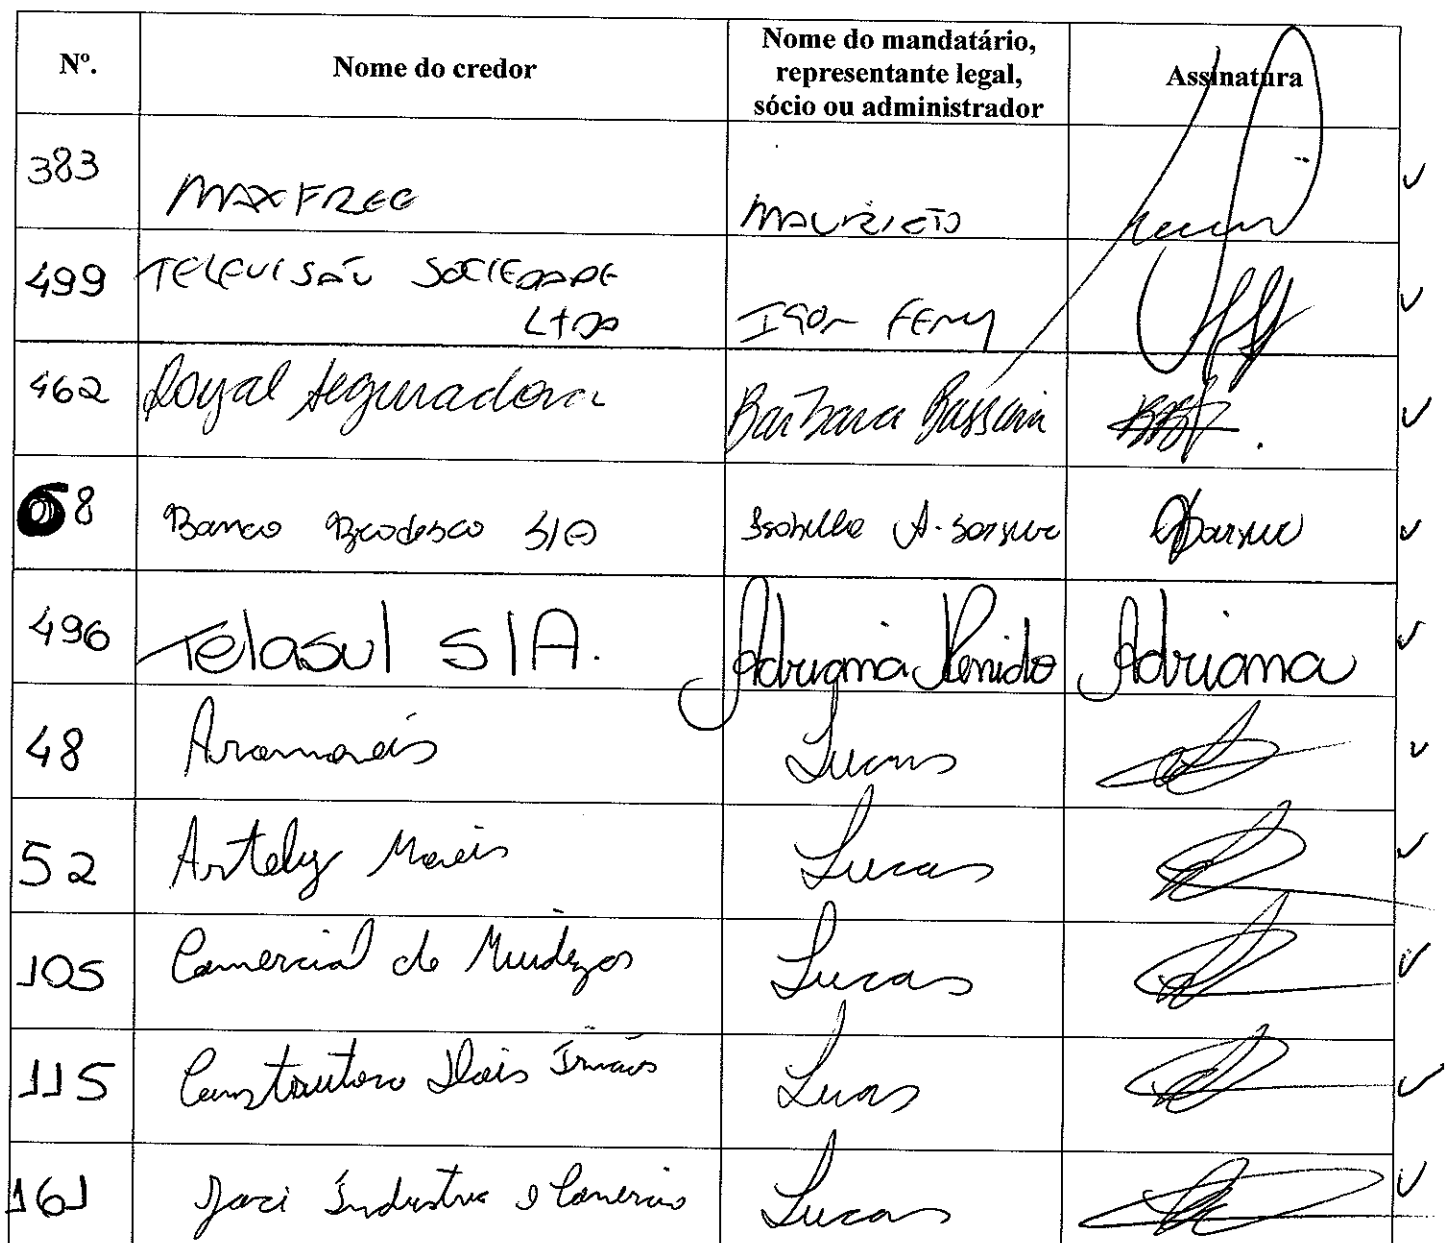 Nº. Nome do credor Nome do mandatário, representante legal, sócio ou administrador Assinatura
383 MAXFREE MAURICIO
499 TELEVISÃO SOCIEDADE
LTDA IGOR FERY
462 Royal Seguradora Barbara
68 Banco Bradesco S/A Isabelle A.
496 Telasul S/A. Adriana Penido Adriana
48 Lucas
52 Artely Móveis Lucas
105 Comercial de Lucas
115 Construtora Dois Irmãos Lucas
161 Jaci Indústria e Comércio Lucas